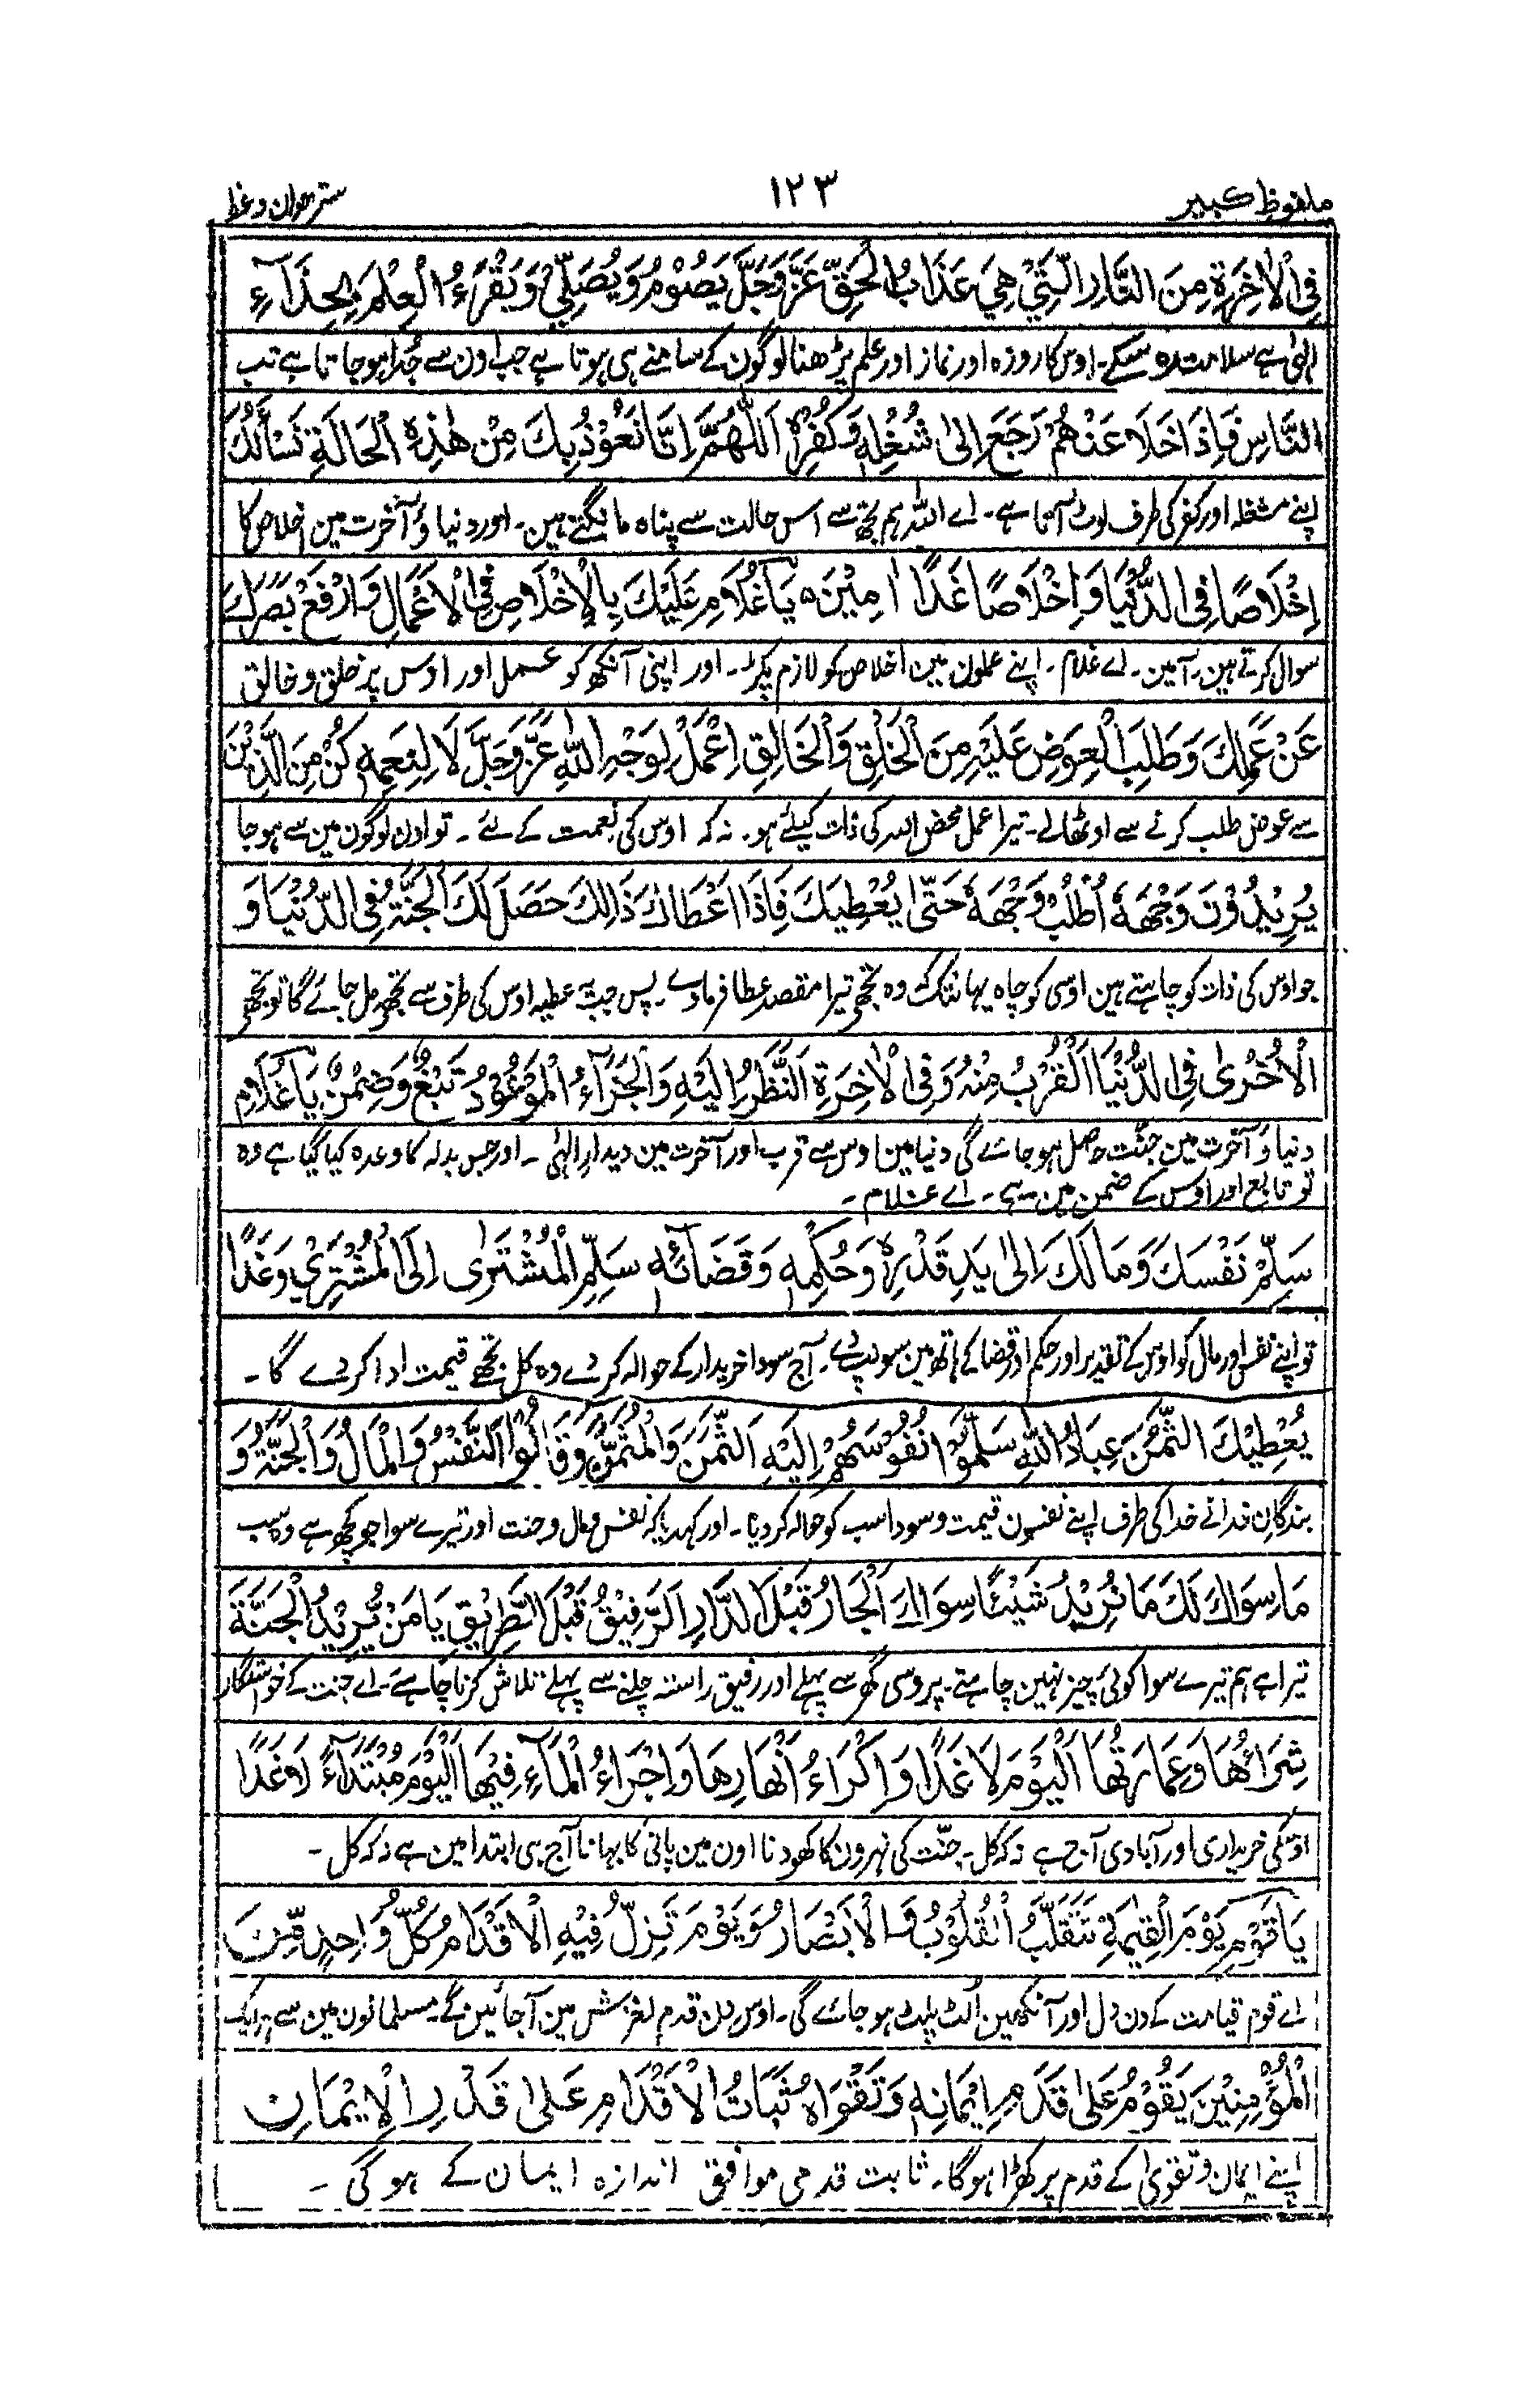 ملفوظ کبیر
۱۲۳
سترھوان وعظ
فِی الْاٰخِرَةِ مِنَ النَّارِ الَّتِيْ هِيَ عَذَابُ الْحَقِّ عَزَّ وَجَلَّ يَصُوْمُ وَيُصَلِّيْ وَيَقْرَءُ الْعِلْمَ بِحِذَآءِ
الٰہی سے سلامت رہ سکے۔ اوس کا روزہ اور نماز اور علم پڑھنا لوگون کے سامنے ہی ہوتا ہے جب اون سے جُدا ہوجاتا ہے تب
النَّاسِ فَاِذَا خَلَا عَنْهُمْ رَجَعَ اِلٰى شُغْلِهٖ وَكُفْرِهٖ اَللّٰهُمَّ اِنَّا نَعُوْذُبِكَ مِنْ هٰذِهِ الْحَالَةِ نَسْأَلُكَ
اپنے مشغلہ اور کفر کی طرف لوٹ آتا ہے۔ اے اللہ ہم تجھ سے اس حالت سے پناہ مانگتے ہین۔ اور دنیا و آخرت مین اخلاص کا
اِخْلَاصًا فِی الدُّنْيَا وَاِخْلَاصًا غَدًا اٰمِيْنَ ہ يَا غُلَامِ عَلَيْكَ بِالْاِخْلَاصِ فِی الْاَعْمَالِ وَارْفَعْ بَصَرَكَ
سوال کرتے ہین۔ آمین۔ اے غلام۔ اپنے عملون مین اخلاص کو لازم پکڑ۔ اور اپنی آنکھ کو عمل اور اوس پر خلق و خالق
عَنْ عَمَلِكَ وَطَلَبِ الْعِوَضِ عَلَيْهِ مِنَ الْخَلْقِ وَالْخَالِقِ اِعْمَلْ لِوَجْهِ اللّٰهِ عَزَّ وَجَلَّ لَا لِنِعَمِهٖ كُنْ مِنَ الَّذِيْنَ
سے عوض طلب کرنے سے اوٹھالے۔ تیرا عمل محض اللہ کی ذات کیلئے ہو۔ نہ کہ اوس کی نعمت کے لئے۔ تو اون لوگون مین سے ہوجا
يُرِيْدُوْنَ وَجْهَهٗ اُطْلُبْ وَجْهَهٗ حَتّٰى يُعْطِيَكَ فَاِذَا اَعْطَاكَ ذَالِكَ حَصَلَ لَكَ الْجَنَّةُ فِی الدُّنْيَا وَ
جو اوس کی ذات کو چاہتے ہین اوسی کو چاہ یہانتک کہ وہ تجھے تیرا مقصد عطا فرمادے۔ پس جب یہ عطیہ اوس کی طرف سے تجھے مل جائے گا تو تجھے
الْاُخْرٰى فِی الدُّنْيَا الْقُرْبُ مِنْهُ وَفِی الْاٰخِرَةِ النَّظَرُ اِلَيْهِ وَالْجَزَآءُ الْمَوْعُوْدُ تَبْعٌ وَضِمْنٌ يَا غُلَامِ
دنیا و آخرت مین جنّت حاصل ہوجائے گی دنیا مین اوس سے قرب اور آخرت مین دیدارِ الٰہی۔ اور جس بدلہ کا وعدہ کیا گیا ہے وہ
تو تابع اور اوس کے ضمن مین ہے۔ اے غلام۔
سَلِّمْ نَفْسَكَ وَمَالَكَ اِلٰى يَدِ قَدْرِهٖ وَحُكْمِهٖ وَقَضَائِهٖ سَلِّمِ الْمُشْتَرٰى اِلَى الْمُشْتَرِيْ وَغَدًا
تو اپنے نفس اور مال کو اوس کے تقدیر اور حکم اور قضا کے ہاتھ مین سونپ دے۔ آج سودا خریدار کے حوالہ کر دے وہ کل تجھے قیمت ادا کردے گا۔
يُعْطِيْكَ الثَّمَنَ عِبَادُ اللّٰهِ سَلَّمُوْا نُفُوْسَهُمْ اِلَيْهِ اَلثَّمَنَ وَالْمُثَمَّنَ وَقَالُوْا النَّفْسُ وَالْمَالُ وَالْجَنَّةُ وَ
بندگانِ خدا نے خدا کی طرف اپنے نفسون قیمت و سودا سب کو حوالہ کردیا۔ اور کہدیا کہ نفس و مال و جنت اور تیرے سوا جو کچھ ہے وہ سب
مَا سِوَاكَ لَكَ مَا نُرِيْدُ شَيْئًا سِوَاكَ اَلْجَارُ قَبْلَ الدَّارِ اَلرَّفِيْقُ قَبْلَ الطَّرِيْقِ يَا مَنْ يُّرِيْدُ الْجَنَّةَ
تیرا ہے ہم تیرے سوا کوئی چیز نہین چاہتے۔ پروسی گھر سے پہلے اور رفیق راستہ چلنے سے پہلے تلاش کرنا چاہئے۔ اے جنت کے خواستگار
شِرَاءُهَا وَعِمَارَتُهَا اَلْيَوْمَ لَا غَدًا وَاِكْرَاءُ اَنْهَارِهَا وَاِجْرَاءُ الْمَآءِ فِيْهَا اَلْيَوْمَ مُبْتَدَآءً لَا غَدًا
اوسکی خریداری اور آبادی آج ہے نہ کہ کل۔ جنّت کی نہرون کا کھودنا اون مین پانی کا بہانا آج ہی ابتدا مین ہے نہ کہ کل۔
يَا قَوْمِ يَوْمَ الْقِيٰمَةِ تَتَقَلَّبُ الْقُلُوْبُ وَالْاَبْصَارُ وَيَوْمَ تَزِلُّ فِيْهِ الْاَقْدَامُ كُلُّ وَاحِدٍ مِّنَ
اے قوم قیامت کے دن دل اور آنکھین اُلٹ پلٹ ہوجائے گی۔ اوس دن قدم لغزش مین آجائین گے۔ مسلمانون مین سے ہر ایک
الْمُؤْمِنِيْنَ يَقُوْمُ عَلٰى قَدَمِ اِيْمَانِهٖ وَتَقْوَاهُ ثَبَاتُ الْاَقْدَامِ عَلٰى قَدْرِ الْاِيْمَانِ
اپنے ایمان و تقویٰ کے قدم پر کھڑا ہوگا۔ ثابت قدمی موافق اندازہ ایمان کے ہوگی۔